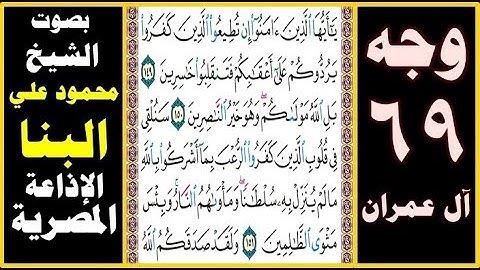 وجه
٦٩
آل عمران
يَٰٓأَيُّهَا ٱلَّذِينَ ءَامَنُوٓا۟ إِن تُطِيعُوا۟ ٱلَّذِينَ كَفَرُوا۟
يَرُدُّوكُمْ عَلَىٰٓ أَعْقَٰبِكُمْ فَتَنقَلِبُوا۟ خَٰسِرِينَ ١٤٩
بَلِ ٱللَّهُ مَوْلَىٰكُمْ ۖ وَهُوَ خَيْرُ ٱلنَّٰصِرِينَ ١٥٠ سَنُلْقِى
فِى قُلُوبِ ٱلَّذِينَ كَفَرُوا۟ ٱلرُّعْبَ بِمَآ أَشْرَكُوا۟ بِٱللَّهِ
مَا لَمْ يُنَزِّلْ بِهِۦ سُلْطَٰنًا ۖ وَمَأْوَىٰهُمُ ٱلنَّارُ ۚ وَبِئْسَ
مَثْوَى ٱلظَّٰلِمِينَ ١٥١ وَلَقَدْ صَدَقَكُمُ ٱللَّهُ
بصوت
الشيخ
محمود علي
البنا
الإذاعة
المصرية